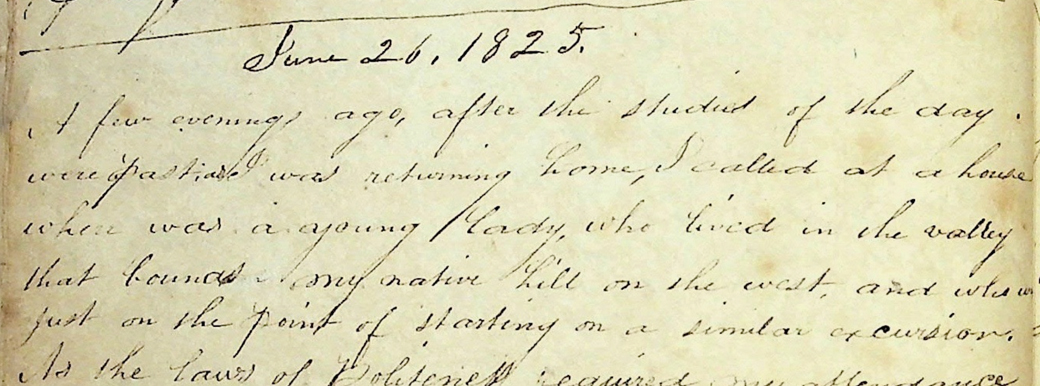 June 26, 1825.
A few evenings ago, after the studies of the day
were past, as I was returning home, I called at a house
where was a young lady, who lived in the valley
that bounds my native hill on the west, and who w
just on the point of starting on a similar excursion.
As the laws of Politeness required my attendance